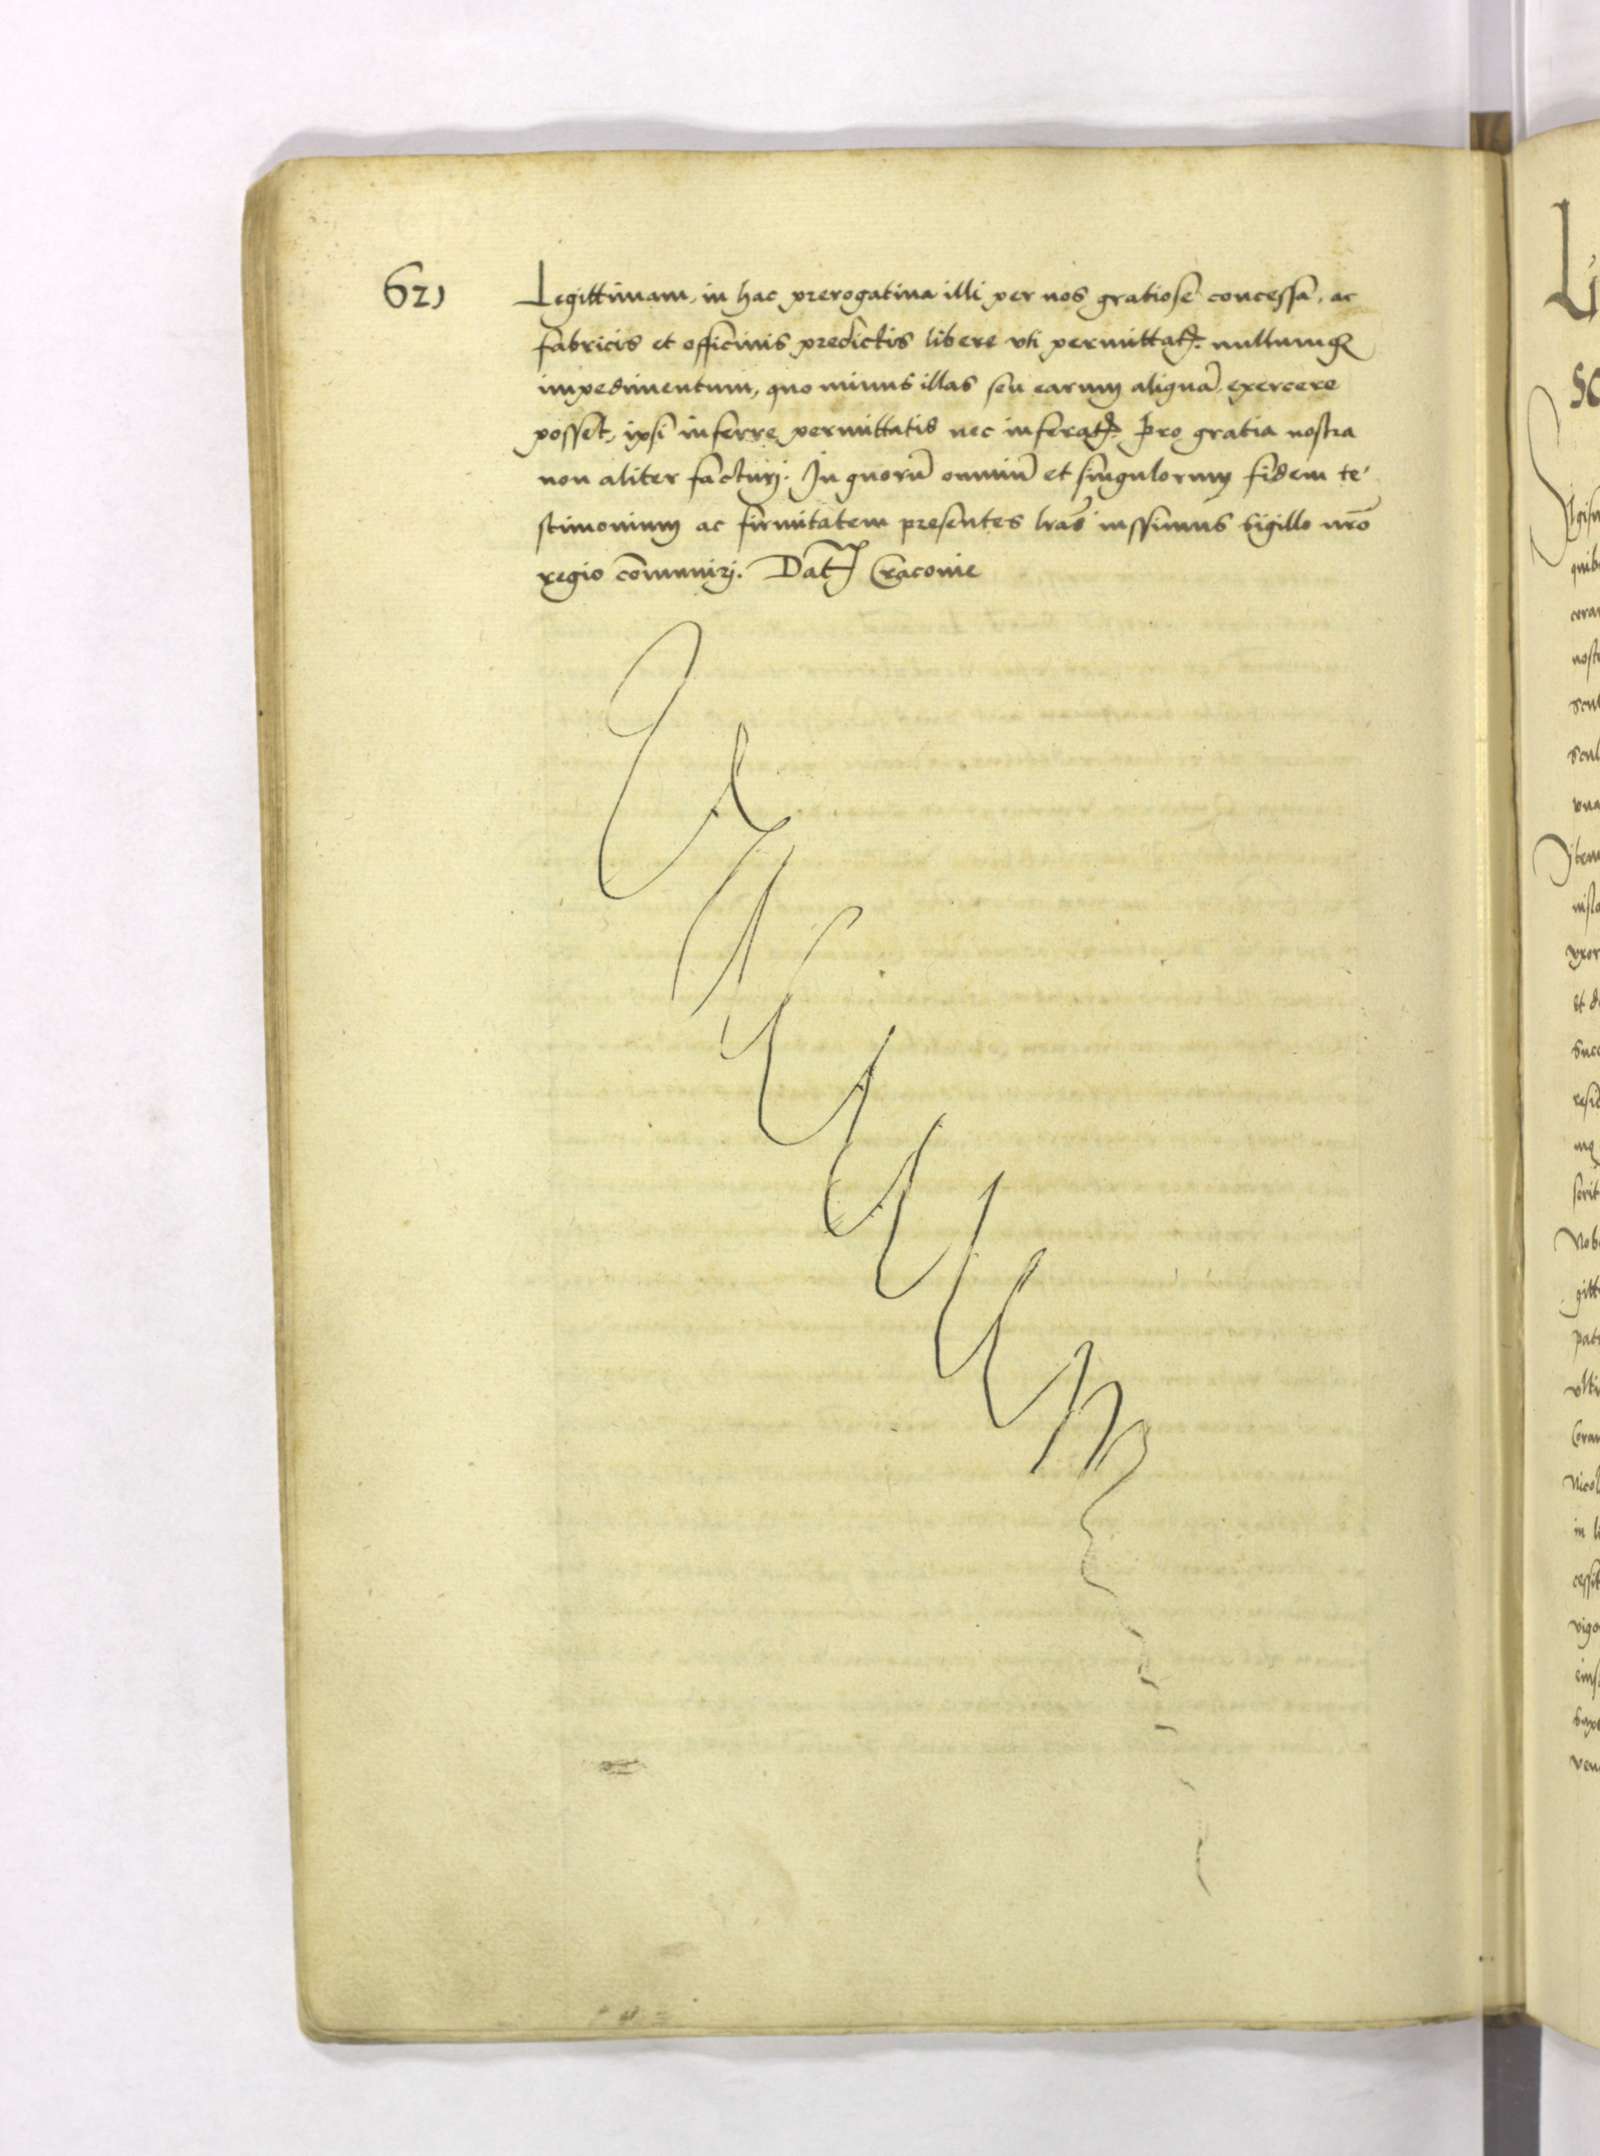 621
Legittimam, in hac prerogativa illi per nos gratiose concessa, ac
fabricis et officinis predictis libere uti permittat. nullumq
impedimentum, quo minus illas seu earum aliquã exercere
posset, ipsi inferre permittatis nec inferat. Pro gratia nostra
non aliter facturj. In quorũ omniũ et singulorum fidem te
stimonium ac firmitatem presentes lr̃as iussimus sigillo nr̃o
regio com̃unirj. Dat Cracovie